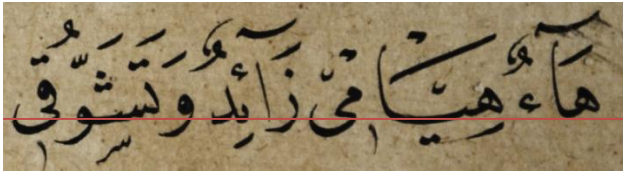 هَآءُ هُيَامِىْ زَآئِدٌ وَتَشَوُّقِى